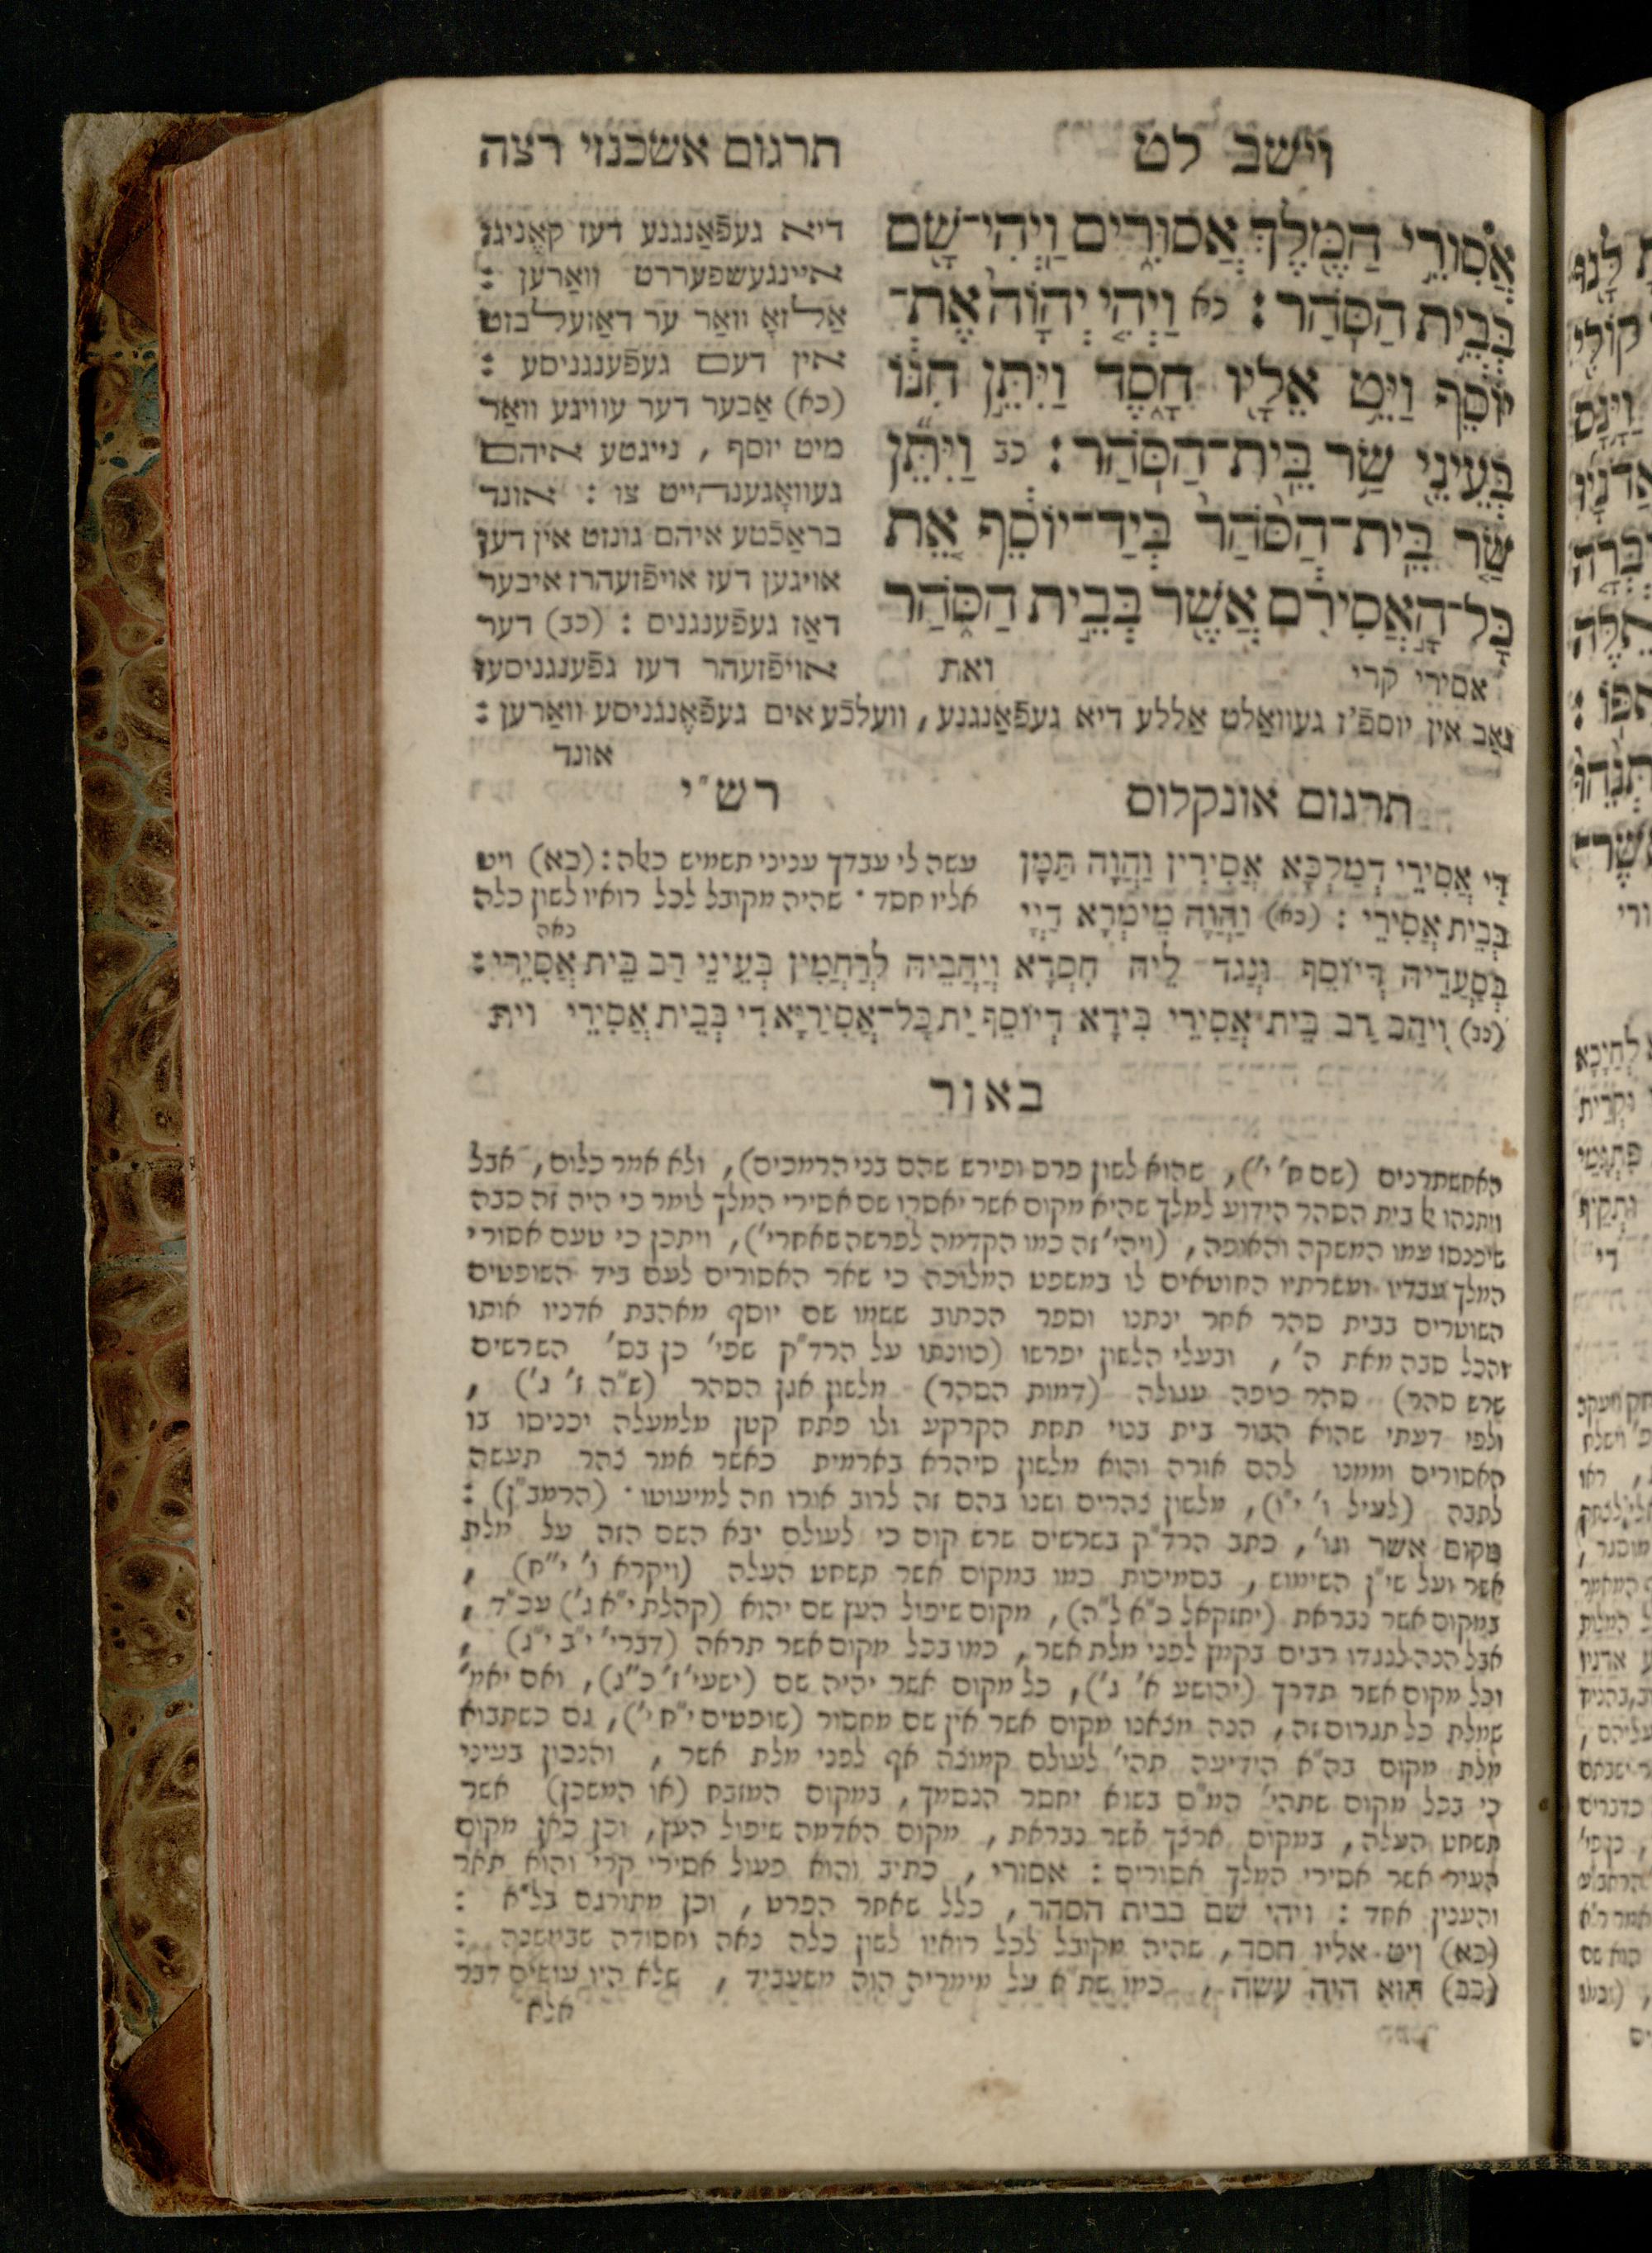 וישב לט
תרגום אשכנזי רצה
אֲסוּרֵי הַמֶּלֶךְ אֲסוּרִים וַיְהִי־שָׁם
בְּבֵית הַסֹּהַר: כא וַיְהִי יְהוָֹה אֶת־
יוֹסֵף וַיֵּט אֵלָיו חָסֶד וַיִּתֵּן חִנּוֹ
בְּעֵינֵי שַׂר בֵּית־הַסֹּהַר: כב וַיִּתֵּן
שַׂר בֵּית־הַסֹּהַר בְּיַד־יוֹסֵף אֵת
כָּל־הָאֲסִירִם אֲשֶׁר בְּבֵית הַסֹּהַר
אסירי קרי
ואת
דיא געפֿאַנגנע דעז קאֶניגז
איינגעשפערט וואַרען :
אַלזאָ וואַר ער דאַזעלבזט
אין דעם געפֿענגניסע :
(כא) אַבער דער עוויגע וואַר
מיט יוסף , נייגטע איהם
געוואָגענהייט צו : אונד
בראַכֿטע איהם גונזט אין דען
אויגען דעז אויפֿזעהרז איבער
דאַז געפֿענגנים : (כב) דער
אויפֿזעהר דעז גפֿענגניסעז
גאַב אין יוספֿ'ז געוואַלט אַללע דיא געפֿאַנגנע , וועלכֿע אים געפֿאֶנגניסע וואַרען :
אונד
תרגום אונקלוס
דִּי אֲסִירֵי דְמַלְכָּא אֲסִירִין וַהֲוָה תַּמָּן
בְּבֵית אֲסִירֵי : (כא) וַהֲוָה מֵימְרָא דַיְיָ
בְּסַעֲדֵיהּ דְּיוֹסֵף וּנְגַד לֵיהּ חִסְדָּא וִיהֲבֵיהּ לְרַחֲמִין בְּעֵינֵי רַב בֵּית אֲסִירֵי :
(כב) וִיהַב רַב בֵּית אֲסִירֵי בִּידָא דְיוֹסֵף יַת כָּל־אֲסִירַיָּא דִּי בְּבֵית אֲסִירֵי וית
רש"י
עשה לי עבדך עניני תשמיש כאלה: (כא) ויט
אליו חסד · שהיה מקובל לכל רואיו לשון כלה
נאה
באור
האחשתרנים (שם ח' י'), שהוא לשון פרס ופירש שהם בני הרמכים), ולא אמר כלום, אבל
ויתנהו אל בית הסהר הידוע למלך שהיא מקום אשר יאסרו שם אסירי המלך לומר כי היה זה סבה
שיכנסו עמו המשקה והאופה, (ויהי' זה כמו הקדמה לפרשה שאחרי'), ויתכן כי טעם אסורי
המלך עבדיו ומשרתיו החוטאים לו במשפט המלוכה כי שאר האסורים לעם ביד השופטים
השוטרים בבית סהר אחר ינתנו וספר הכתוב ששמו שם יוסף מאהבת אדניו אותו
והכל סבה מאת ה', ובעלי הלשון יפרשו (כוונתו על הרד"ק שפי' כן בס' השרשים
שרש סהר) סהר כיפה עגולה (דמות הסהר) מלשון אגן הסהר (ש"ה ז' ג') ,
ולפי דעתי שהוא הבור בית בנוי תחת הקרקע ולו פתח קטן מלמעלה יכניסו בו
האסורים וממנו להם אורה והוא מלשון סיהרא בארמית כאשר אמר צהר תעשה
לתבה (לעיל ו' י"ו), מלשון צהרים ושנו בהם זה לרוב אורו וזה למיעוטו · (הרמב"ן) :
מקום אשר וגו', כתב הרד"ק בשרשים שרש קום כי לעולם יבא השם הזה על מלת
אשר ועל שי"ן השימוש, בסמיכות כמו במקום אשר תשחט העלה (ויקרא ו' י"ח) ,
במקום אשר נבראת (יחזקאל כ"א ל"ה), מקום שיפול העץ שם יהוא (קהלת י"א ג') עכ"ד ,
אבל הנה לנגדו רבים בקמץ לפני מלת אשר, כמו בכל מקום אשר תראה (דברי' י"ב י"ג) ,
וכל מקום אשר תדרך (יהושע א' ג'), כל מקום אשר יהיה שם (ישעי' ז' כ"ג), ואם יאמ'
שמלת כל תגרום זה, הנה מצאנו מקום אשר אין שם מחסור (שופטים י"ח י'), גם כשתבוא
מלת מקום בה"א הידיעה תהי' לעולם קמוצה אף לפני מלת אשר , והנכון בעיני
כי בכל מקום שתהי' המ"ם בשוא יחסר הנסמך, במקום המזבח (או המשכן) אשר
תשחט העלה, במקום ארצך אשר נבראת, מקום האדמה שיפול העץ, וכן כאן מקום
העיר אשר אסירי המלך אסורים : אסורי , כתיב והוא פעול אסירי קרי והוא תאר
והענין אחד : ויהי שם בבית הסהר, כלל שאחר הפרט, וכן מתורגם בל"א :
(כא) ויט אליו חסד, שהיה מקובל לכל רואיו לשון כלה נאה וחסודה שבמשנה :
(כב) הוא היה עשה , כמו שת"א על מימריה הוה מתעביד , שלא היו עושים דבר
אלא